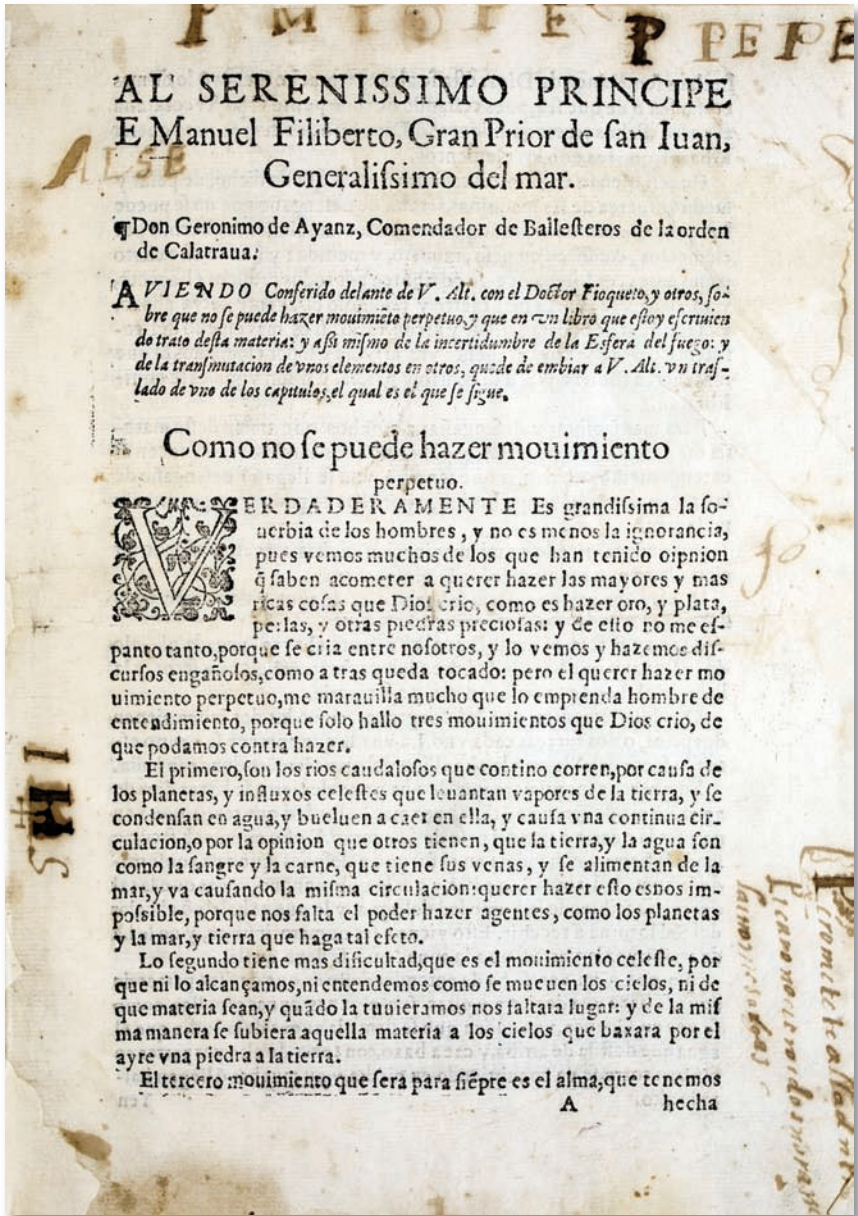 P M I O P E P PE PE
AL SERENISSIMO PRINCIPE
E Manuel Filiberto, Gran Prior de ſan Iuan,
Generaliſsimo del mar.
ALSE
¶Don Geronimo de Ayanz, Comendador de Balleſteros de la orden
de Calatraua.
AVIENDO Conferido delante de V. Alt. con el Doctor Fioqueto, y otros, ſo-
bre que no ſe puede hazer mouimiẽto perpetuo, y que en vn libro que eſtoy eſcriuien
do trato deſta materia: y aſsi miſmo de la incertidumbre de la Esfera del fuego: y
de la tranſmutacion de vnos elementos en otros, quede de embiar a V. Alt. vn traſ-
lado de vno de los capitulos, el qual es el que ſe ſigue.
Como no ſe puede hazer mouimiento
perpetuo.
VERDADERAMENTE Es grandiſsima la ſo-
uerbia de los hombres, y no es menos la ignorancia,
pues vemos muchos de los que han tenido oipnion
q̃ ſaben acometer a querer hazer las mayores y mas
ricas coſas que Dios crio, como es hazer oro, y plata,
perlas, y otras piedras precioſas: y de eſto no me eſ-
panto tanto, porque ſe cria entre noſotros, y lo vemos y hazemos diſ-
curſos engañoſos, como a tras queda tocado: pero el querer hazer mo
uimiento perpetuo, me marauilla mucho que lo emprenda hombre de
entendimiento, porque ſolo hallo tres mouimientos que Dios crio, de
que podamos contra hazer.
El primero, ſon los rios caudaloſos que contino corren, por cauſa de
los planetas, y influxos celeſtes que leuantan vapores de la tierra, y ſe
condenſan en agua, y bueluen a caer en ella, y cauſa vna continua cir-
culacion, o por la opinion que otros tienen, que la tierra, y la agua ſon
como la ſangre y la carne, que tiene ſus venas, y ſe alimentan de la
mar, y va cauſando la miſma circulacion: querer hazer eſto esnos im-
poſsible, porque nos falta el poder hazer agentes, como los planetas
y la mar, y tierra que haga tal efeto.
Lo ſegundo tiene mas dificultad, que es el mouimiento celeſte, por
que ni lo alcançamos, ni entendemos como ſe mueuen los cielos, ni de
que materia ſean, y quãdo la tuuieramos nos faltara lugar: y de la miſ
ma manera ſe ſubiera aquella materia a los cielos que baxara por el
ayre vna piedra a la tierra.
El tercero mouimiento que ſera para ſiẽpre es el alma, que tenemos
A hecha